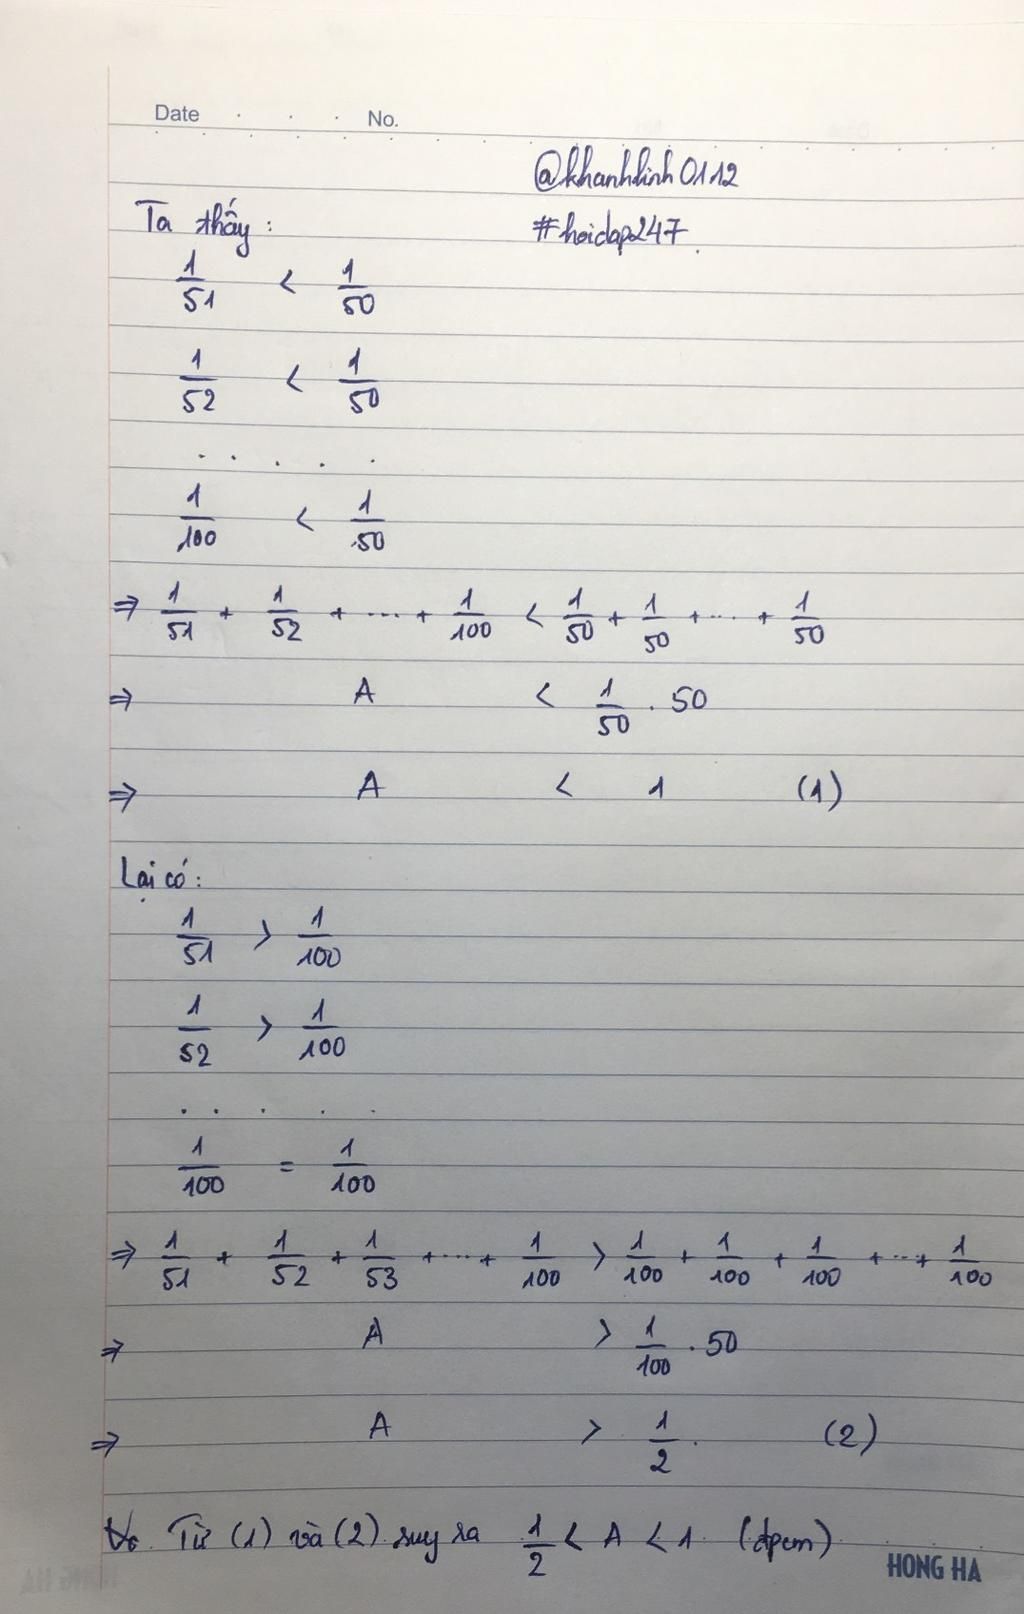 Date . . . No.
@khanhlinh0112
Ta thấy: #hoidap247
1/51 < 1/50
1/52 < 1/50
. . . . .
1/100 < 1/50
⇒ 1/51 + 1/52 + .... + 1/100 < 1/50 + 1/50 + ... + 1/50
⇒ A < 1/50 . 50
⇒ A < 1 (1)
Lại có:
1/51 > 1/100
1/52 > 1/100
. . . . .
1/100 = 1/100
⇒ 1/51 + 1/52 + 1/53 + ... + 1/100 > 1/100 + 1/100 + 1/100 + ... + 1/100
⇒ A > 1/100 . 50
⇒ A > 1/2. (2)
Từ (1) và (2) suy ra 1/2 < A < 1 (đpcm)
HONG HA